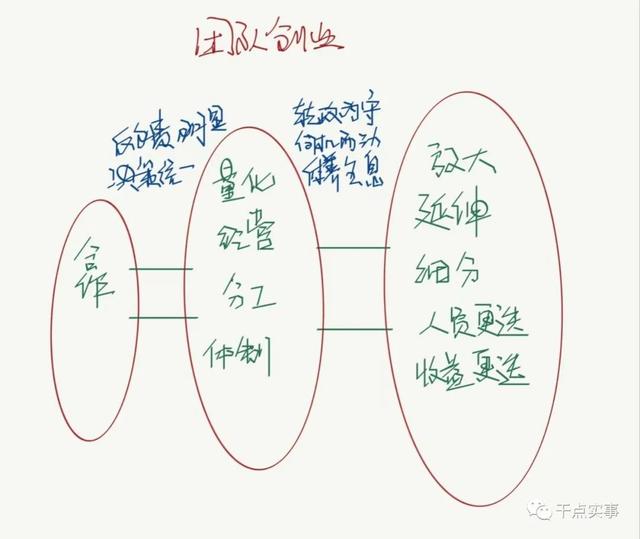 团队创业
责明显
决策统一
转攻为守
伺机而动
养生息
合作
量化
经营
分工
体制
放大
延伸
细分
人员更迭
收益更迭
干点实事